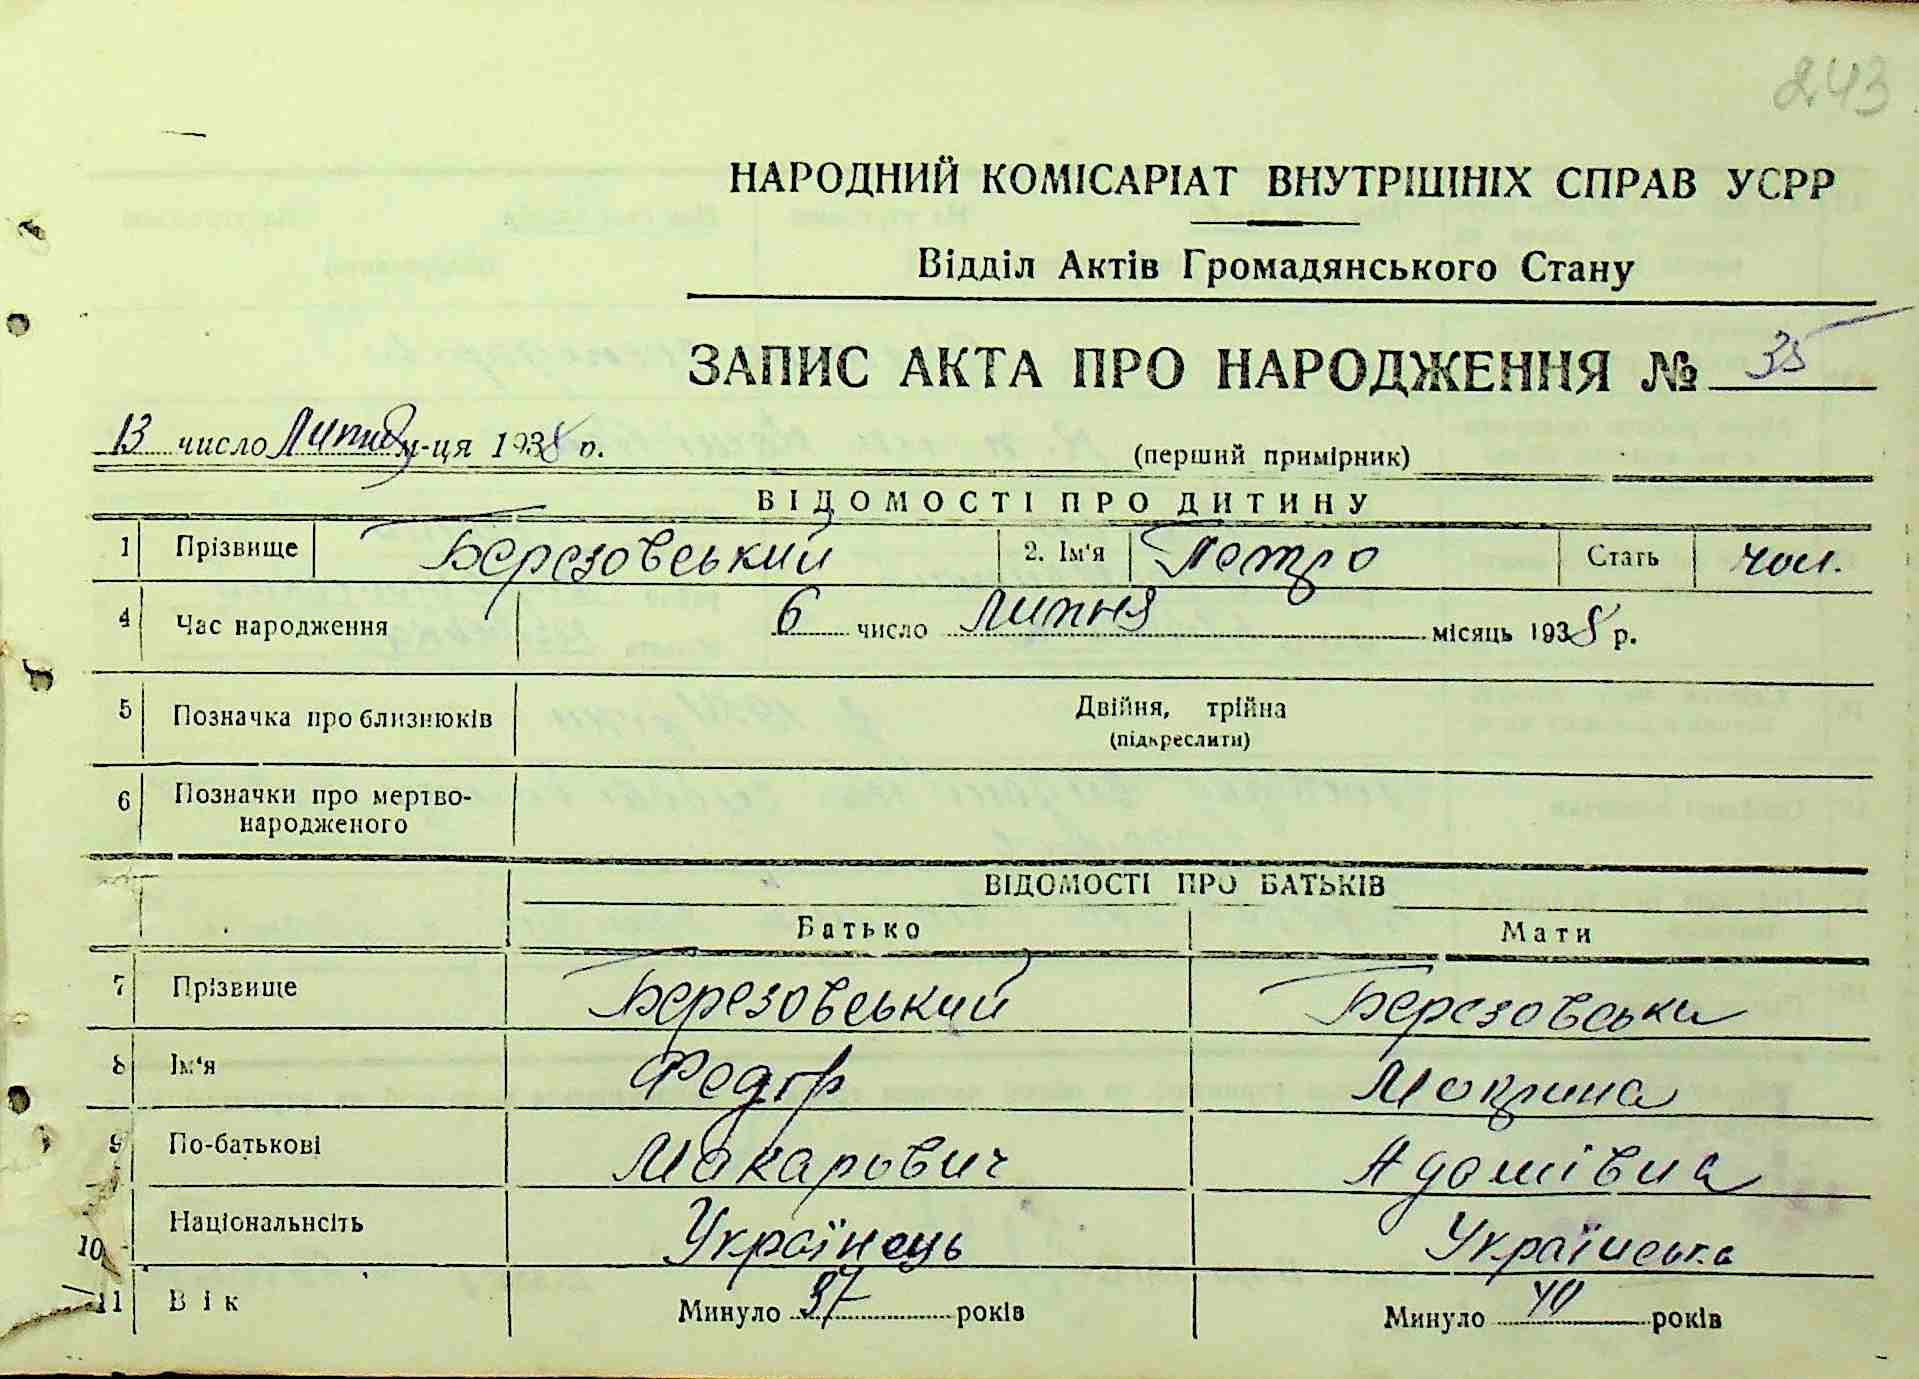 243
НАРОДНИЙ КОМІСАРІАТ ВНУТРІШНІХ СПРАВ УСРР
Відділ Актів Громадянського Стану
ЗАПИС АКТА ПРО НАРОДЖЕННЯ № 35
13 число Липня м-ця 1938 р.
(перший примірник)
ВІДОМОСТІ ПРО ДИТИНУ
1 Прізвище Березовський 2. Ім'я Петро Стать чол.
4 Час народження 6 число Липня місяць 1938 р.
5 Позначка про близнюків Двійня, трійна
(підкреслити)
6 Позначки про мертво-
народженого
ВІДОМОСТІ ПРО БАТЬКІВ
Батько Мати
7 Прізвище Березовський Березовська
8 Ім'я Федір Мокрина
9 По-батькові Макарович Адамівна
10 Національнсіть Українець Українська
11 Вік Минуло 37 років Минуло 40 років